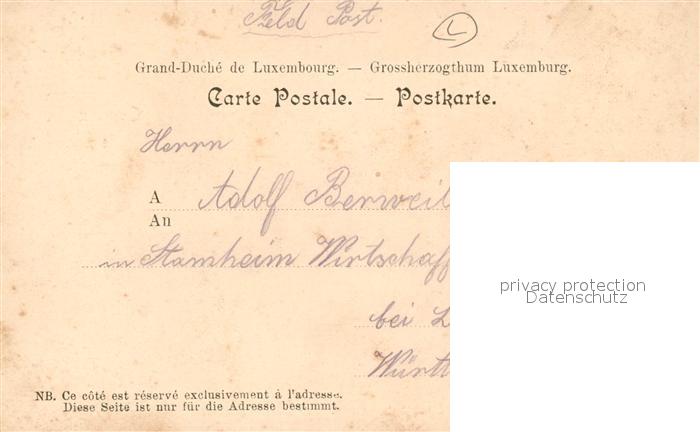 Feld Post.
L
Grand-Duché de Luxembourg. — Grossherzogthum Luxemburg.
Carte Postale. — Postkarte.
Herrn
A Adolf Berweil
An
in Stamheim Wirtschaf
privacy protection
Datenschutz
bei L
Württ
NB. Ce côté est réservé exclusivement à l'adresse.
Diese Seite ist nur für die Adresse bestimmt.